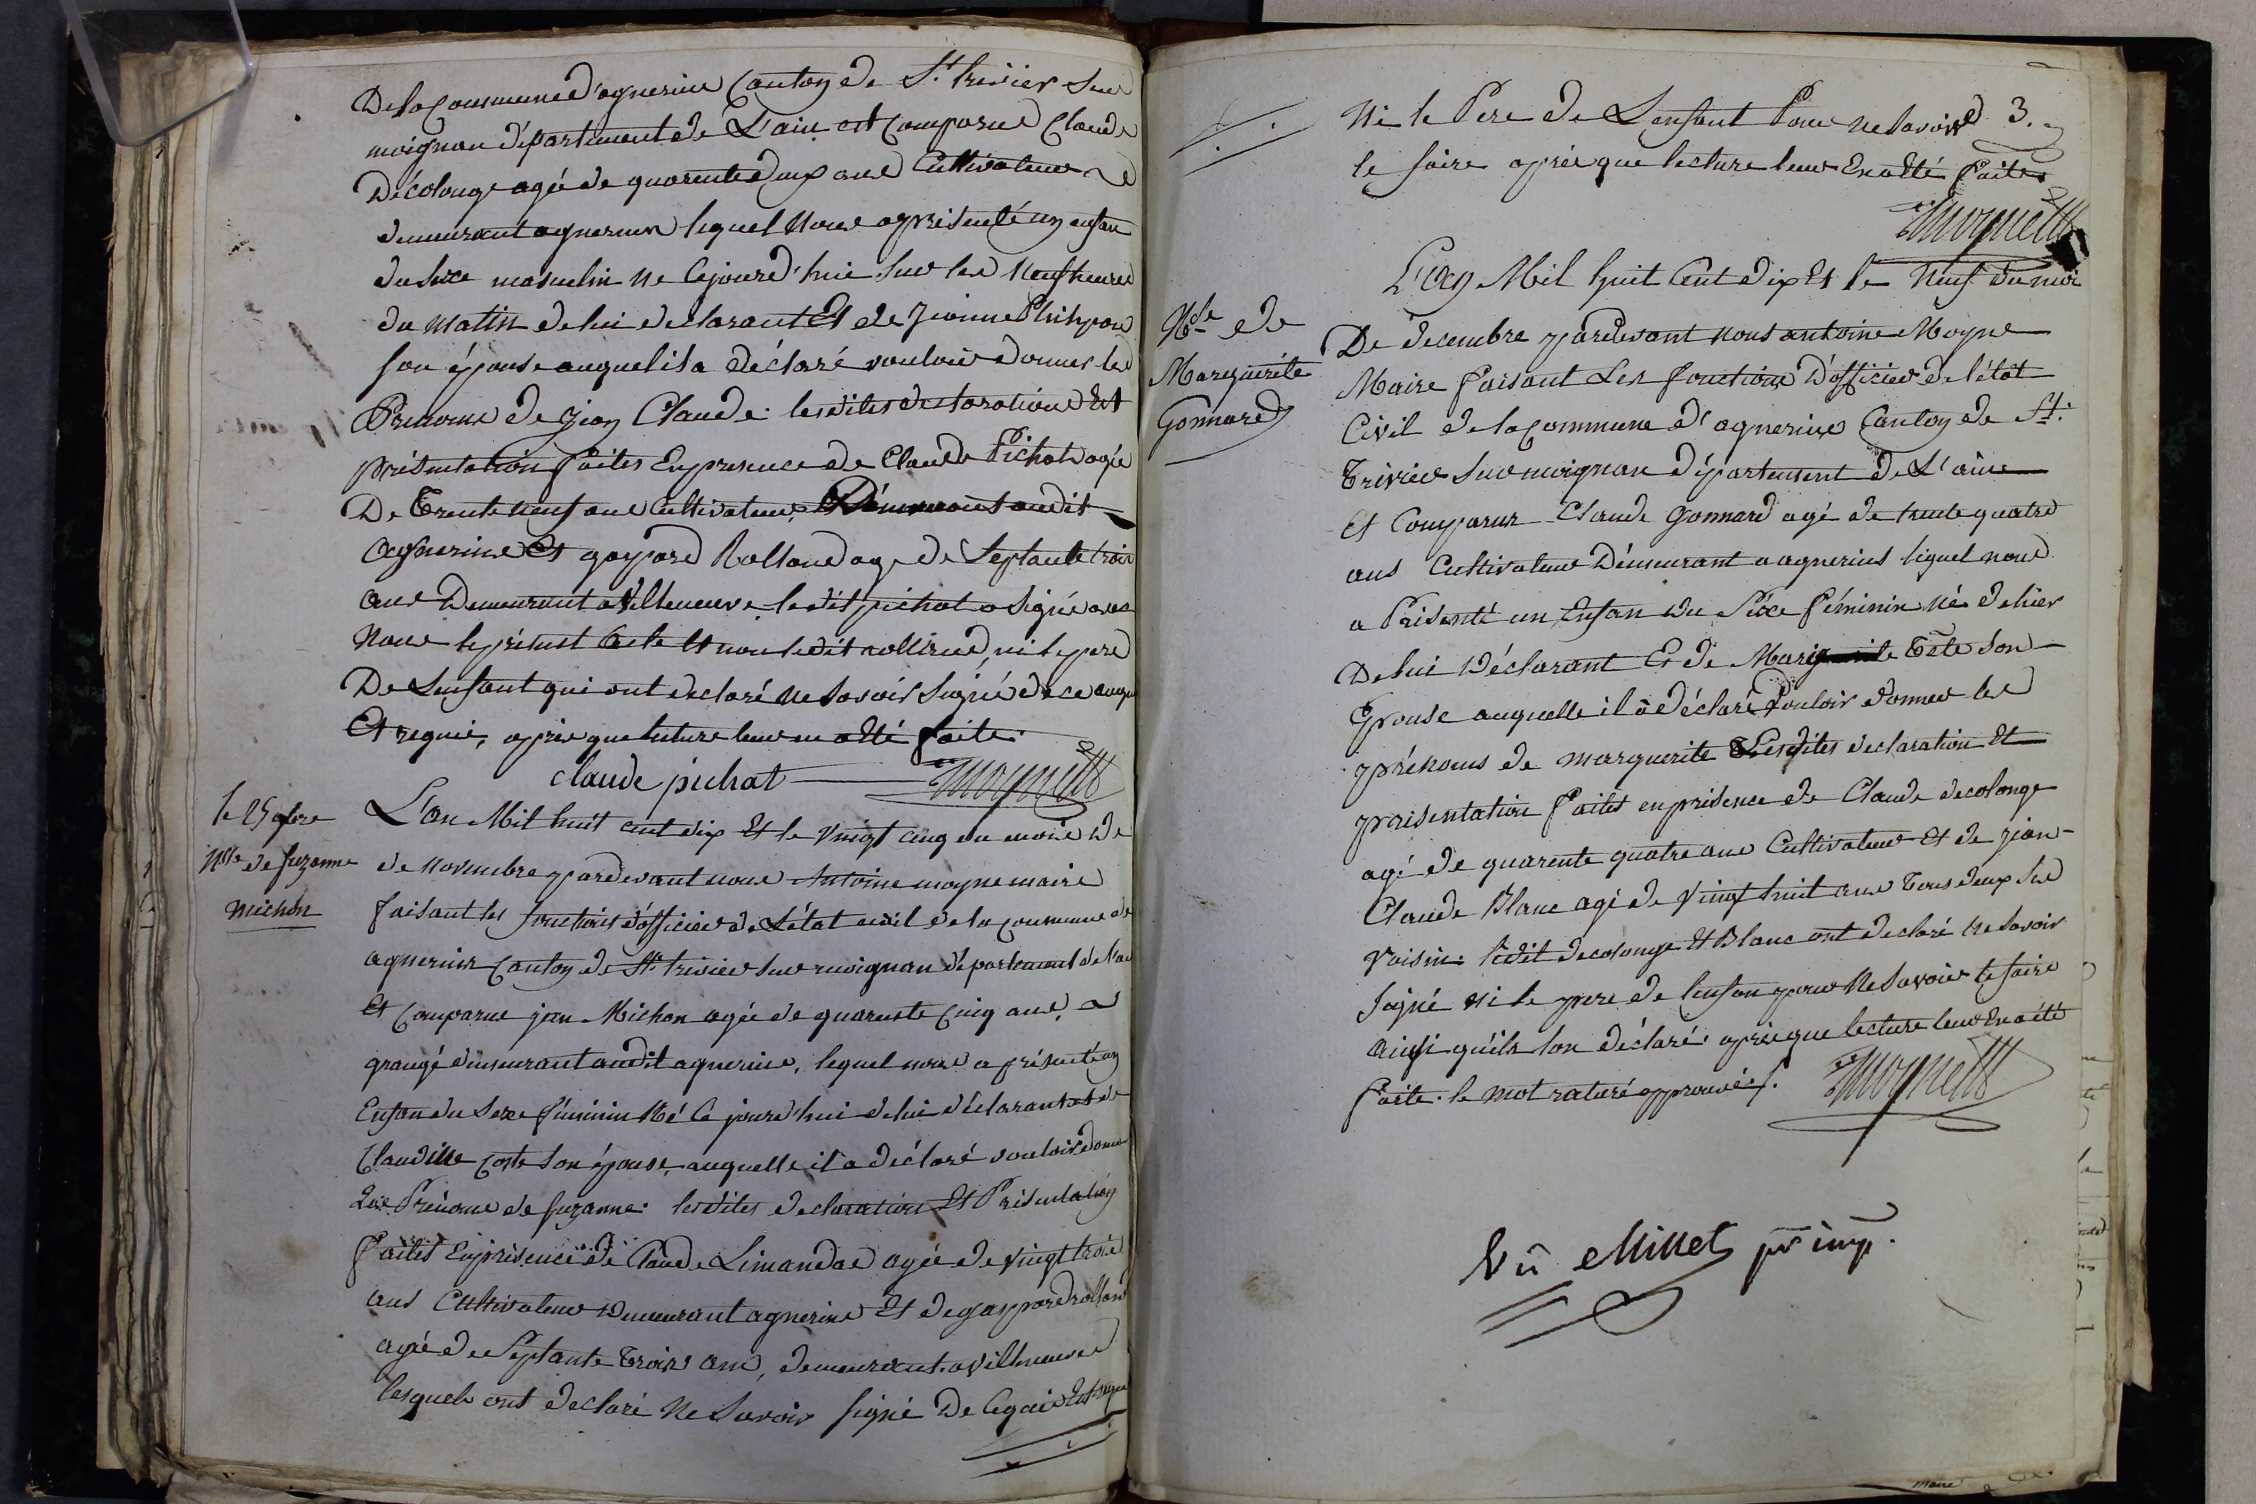 De la Commune d'agnerins Canton de St. trivier Sur
moignan département de L'ain est Comparus Claude
Décolonge agée de quarente deux ans Cultivateur
demeurant agnerins lequel Nous a présenté un enfan
du Sexe masculin Ne Cejourd'hui Sur les Neuf heures
du Matin de lui declarant Et de Jeanne Philipon
son épouse auquel il a déclaré vouloir donner les
Prenoms de Jean Claude: lesdites declarations Et
présentation faites En presence de Claude Pichat agée
De Trente neuf ans Cultivateur Demeurant audit
agnerins Et gaspard Rolland age de Septante trois
ans Demeurant a Villeneuve ledit pichat a Signé avec
Nous le présent acte Et non ledit rolland, ni le pere
De L'enfant qui ont declaré ne Savoir Signé de ce
Et requis, apres que lecture leur en a Eté faite.
claude pichat Moyne
le 25 9bre
Nce de Suzanne
Michon
L'an Mil huit cent dix Et le vingt cinq du mois De
de novembre pardevant nous Antoine moyne maire
faisant les fonctions d'officier de L'état civil de la commune de
agnerins Canton de St. trivier Sur moignan département de l'ain
Et Comparus jean Michon agée de quarante Cinq ans,
grangé demeurant audit agnerins, lequel nous a présenté un
Enfan du Sexe féminin Né Ce jourd'hui de lui déclarant et de
Claudine Coste Son épouse, auquelle il a déclaré vouloir donner
Les Prénoms de Suzanne: lesdites declaration Et Présentation
faites En présence de Claude Limandas agée de Vingt trois
ans Cultivateur Demeurant agnerins Et de gaspard rolland
agée de Septante Trois ans, demeurant a Villeneuve
lesquels ont declaré Ne Savoir Signé De Ce Enquis
Ni le Pere de L'enfant Pour ne Savoir 3.
le faire aprés que lecture leur En a Eté faite.
Moyne
Nce de
Marguérite
Gonnard
L'an Mil huit Cent dix Et le Neuf du moi
De decembre pardevant nous antoine Moyne
Maire faisant Les fonctions D'officier de l'état
Civil de la Commune d'agnerins Canton de St.
Trivier Sur moignan département de L'ain
Et Comparus Claude Gonnard agé de trente quatre
ans Cultivateur Démeurant a agnerins lequel nous
a Présenté un Enfan du Séxe féminin Né d'hier
De lui Déclarant Et de Marie Téte Son
Epouse auquelle il a déclaré Vouloir donner les
prénoms de marguerite Lesdites declaration Et
présentation faites en présence de Claude decolonge
agé de quarente quatre ans Cultivateur Et de jean
Claude Blanc agé de Vingt huit ans Tous deux Ses
Voisin: ledit decolonge Et Blanc ont declaré Ne Savoir
Signé ni le pere de l'enfan pour Ne Savoir le faire
ainsi qu'ils lon déclaré. aprés que lecture leur En a été
faite. le mot raturé approuvé.
Moyne
Vu Millet pr imp.